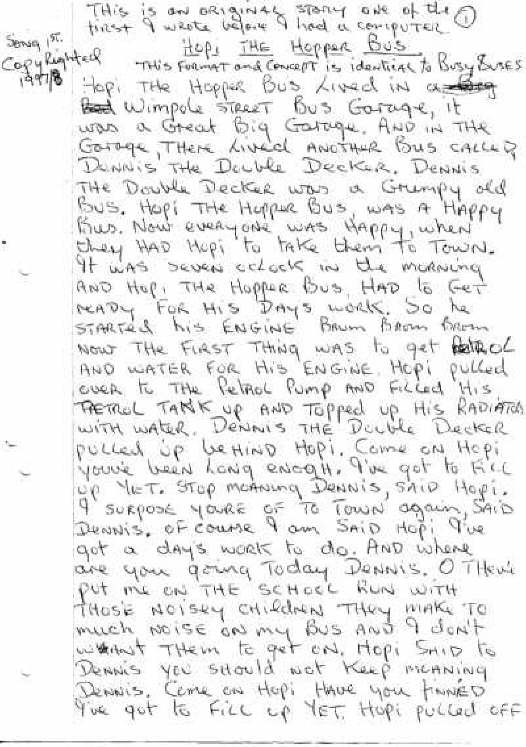 THIS IS AN ORIGINAL STORY ONE OF THE ①
first I wrote before I had a computer
Song 1st.
CopyRighted
1997/8
HOPI THE HOPPER BUS
THIS FORMAT and CONCEPT is identical to BUSY BUSES
Hopi THE HOPPER BUS Lived IN a
Wimpole STREET BUS Garage, it
was a Great Big Garage. AND IN THE
Garage, THERE Lived ANOTHER BUS CALLED,
DENNIS THE Double DECKER. DENNIS
THE Double DECKER was a Grumpy old
BUS. Hopi THE Hopper BUS, WAS A HAPPY
BUS. Now everyone was HAPPY, when
they HAD Hopi to take them To TOWN.
It was seven oclock in the morning
AND Hopi THE Hopper BUS, HAD to GET
READY FOR His DAYS work. So he
STARTED his ENGINE Brum Brom Brom
NOW THE FIRST THING was to get PETROL
AND WATER FOR His ENGINE. Hopi pulled
over to THE Petrol Pump AND Filled His
PETROL TANK up AND Topped up His RADIATOR
WITH WATER. DENNIS THE Double DECKER
pulled up beHIND Hopi. Come on Hopi
youv'e been Long enogh. I've got to Fill
up YET. STOP MOANING DENNIS, SAID Hopi.
I SURPOSE YOURE OF TO TOWN again, SAID
DENNIS. OF COURSE I am SAID Hopi I've
got a day's work to do. AND where
are you going Today DENNIS. O THEV'E
put me ON THE SCHOOL RUN WITH
THOSE NOISEY CHILDREN THEY MAKE TO
much NOISE ON MY BUS AND I don't
WANT THEM to get ON. Hopi SAID to
DENNIS you SHOULD NOT Keep MOANING
DENNIS. Come on Hopi HAVE you FINNED
I've got to Fill up YET. Hopi pulled OFF